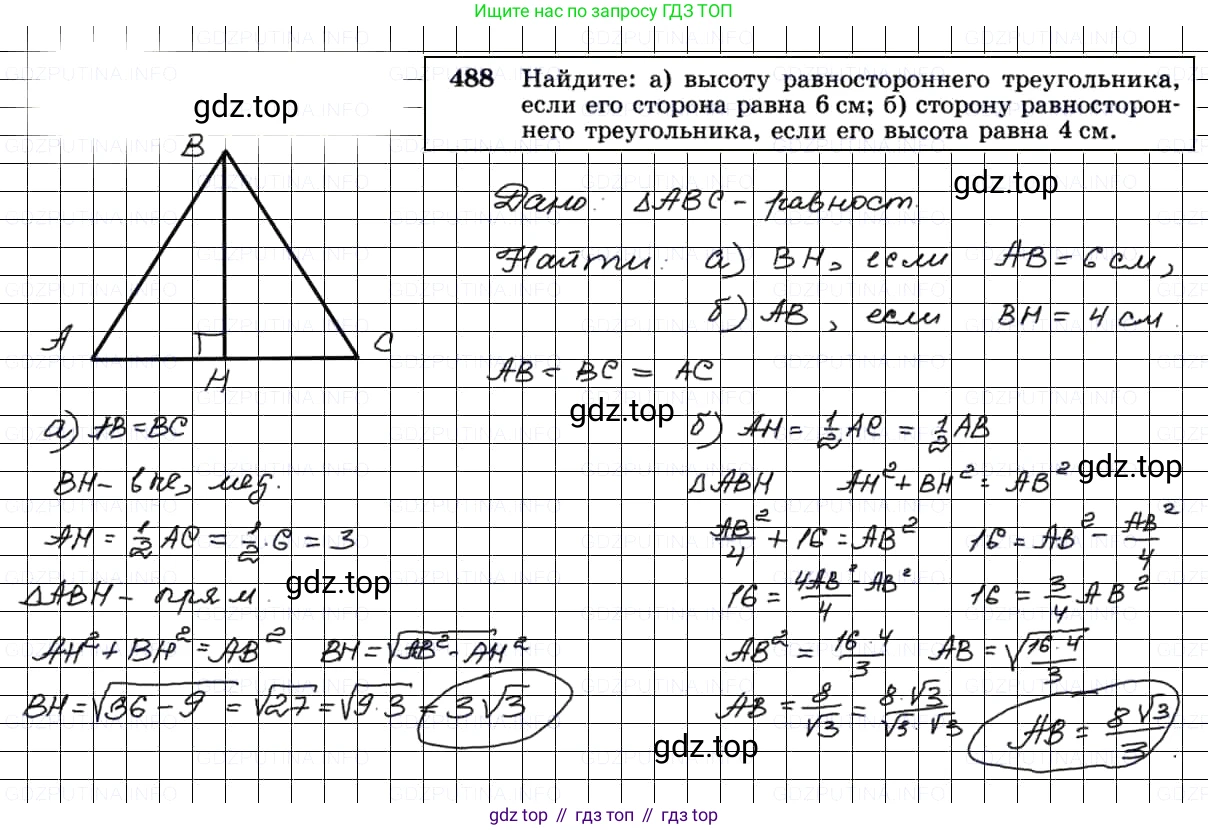 Ищите нас по запросу ГДЗ ТОП
488 Найдите: а) высоту равностороннего треугольника,
если его сторона равна 6 см; б) сторону равносторон-
него треугольника, если его высота равна 4 см.
gdz.top
B
A
C
H
Дано: △ABC - равност.
gdz.top
Найти: а) BH, если AB = 6 см,
б) AB, если BH = 4 см.
AB = BC = AC
gdz.top
а) AB = BC
BH - выс, мед.
AH = 1/2 AC = 1/2 · 6 = 3
△ABH - прям.
gdz.top
AH² + BH² = AB² BH = √(AB² - AH²)
BH = √(36 - 9) = √27 = √(9·3) = 3√3
б) AH = 1/2 AC = 1/2 AB
△ABH AH² + BH² = AB²
gdz.top
AB²/4 + 16 = AB² 16 = AB² - AB²/4
16 = (4AB² - AB²)/4 16 = 3/4 AB²
AB² = (16·4)/3 AB = √((16·4)/3)
AB = 8/√3 = (8·√3)/(√3·√3) AB = 8√3/3
gdz.top
gdz top // гдз топ // gdz top
GDZPUTINA.INFO